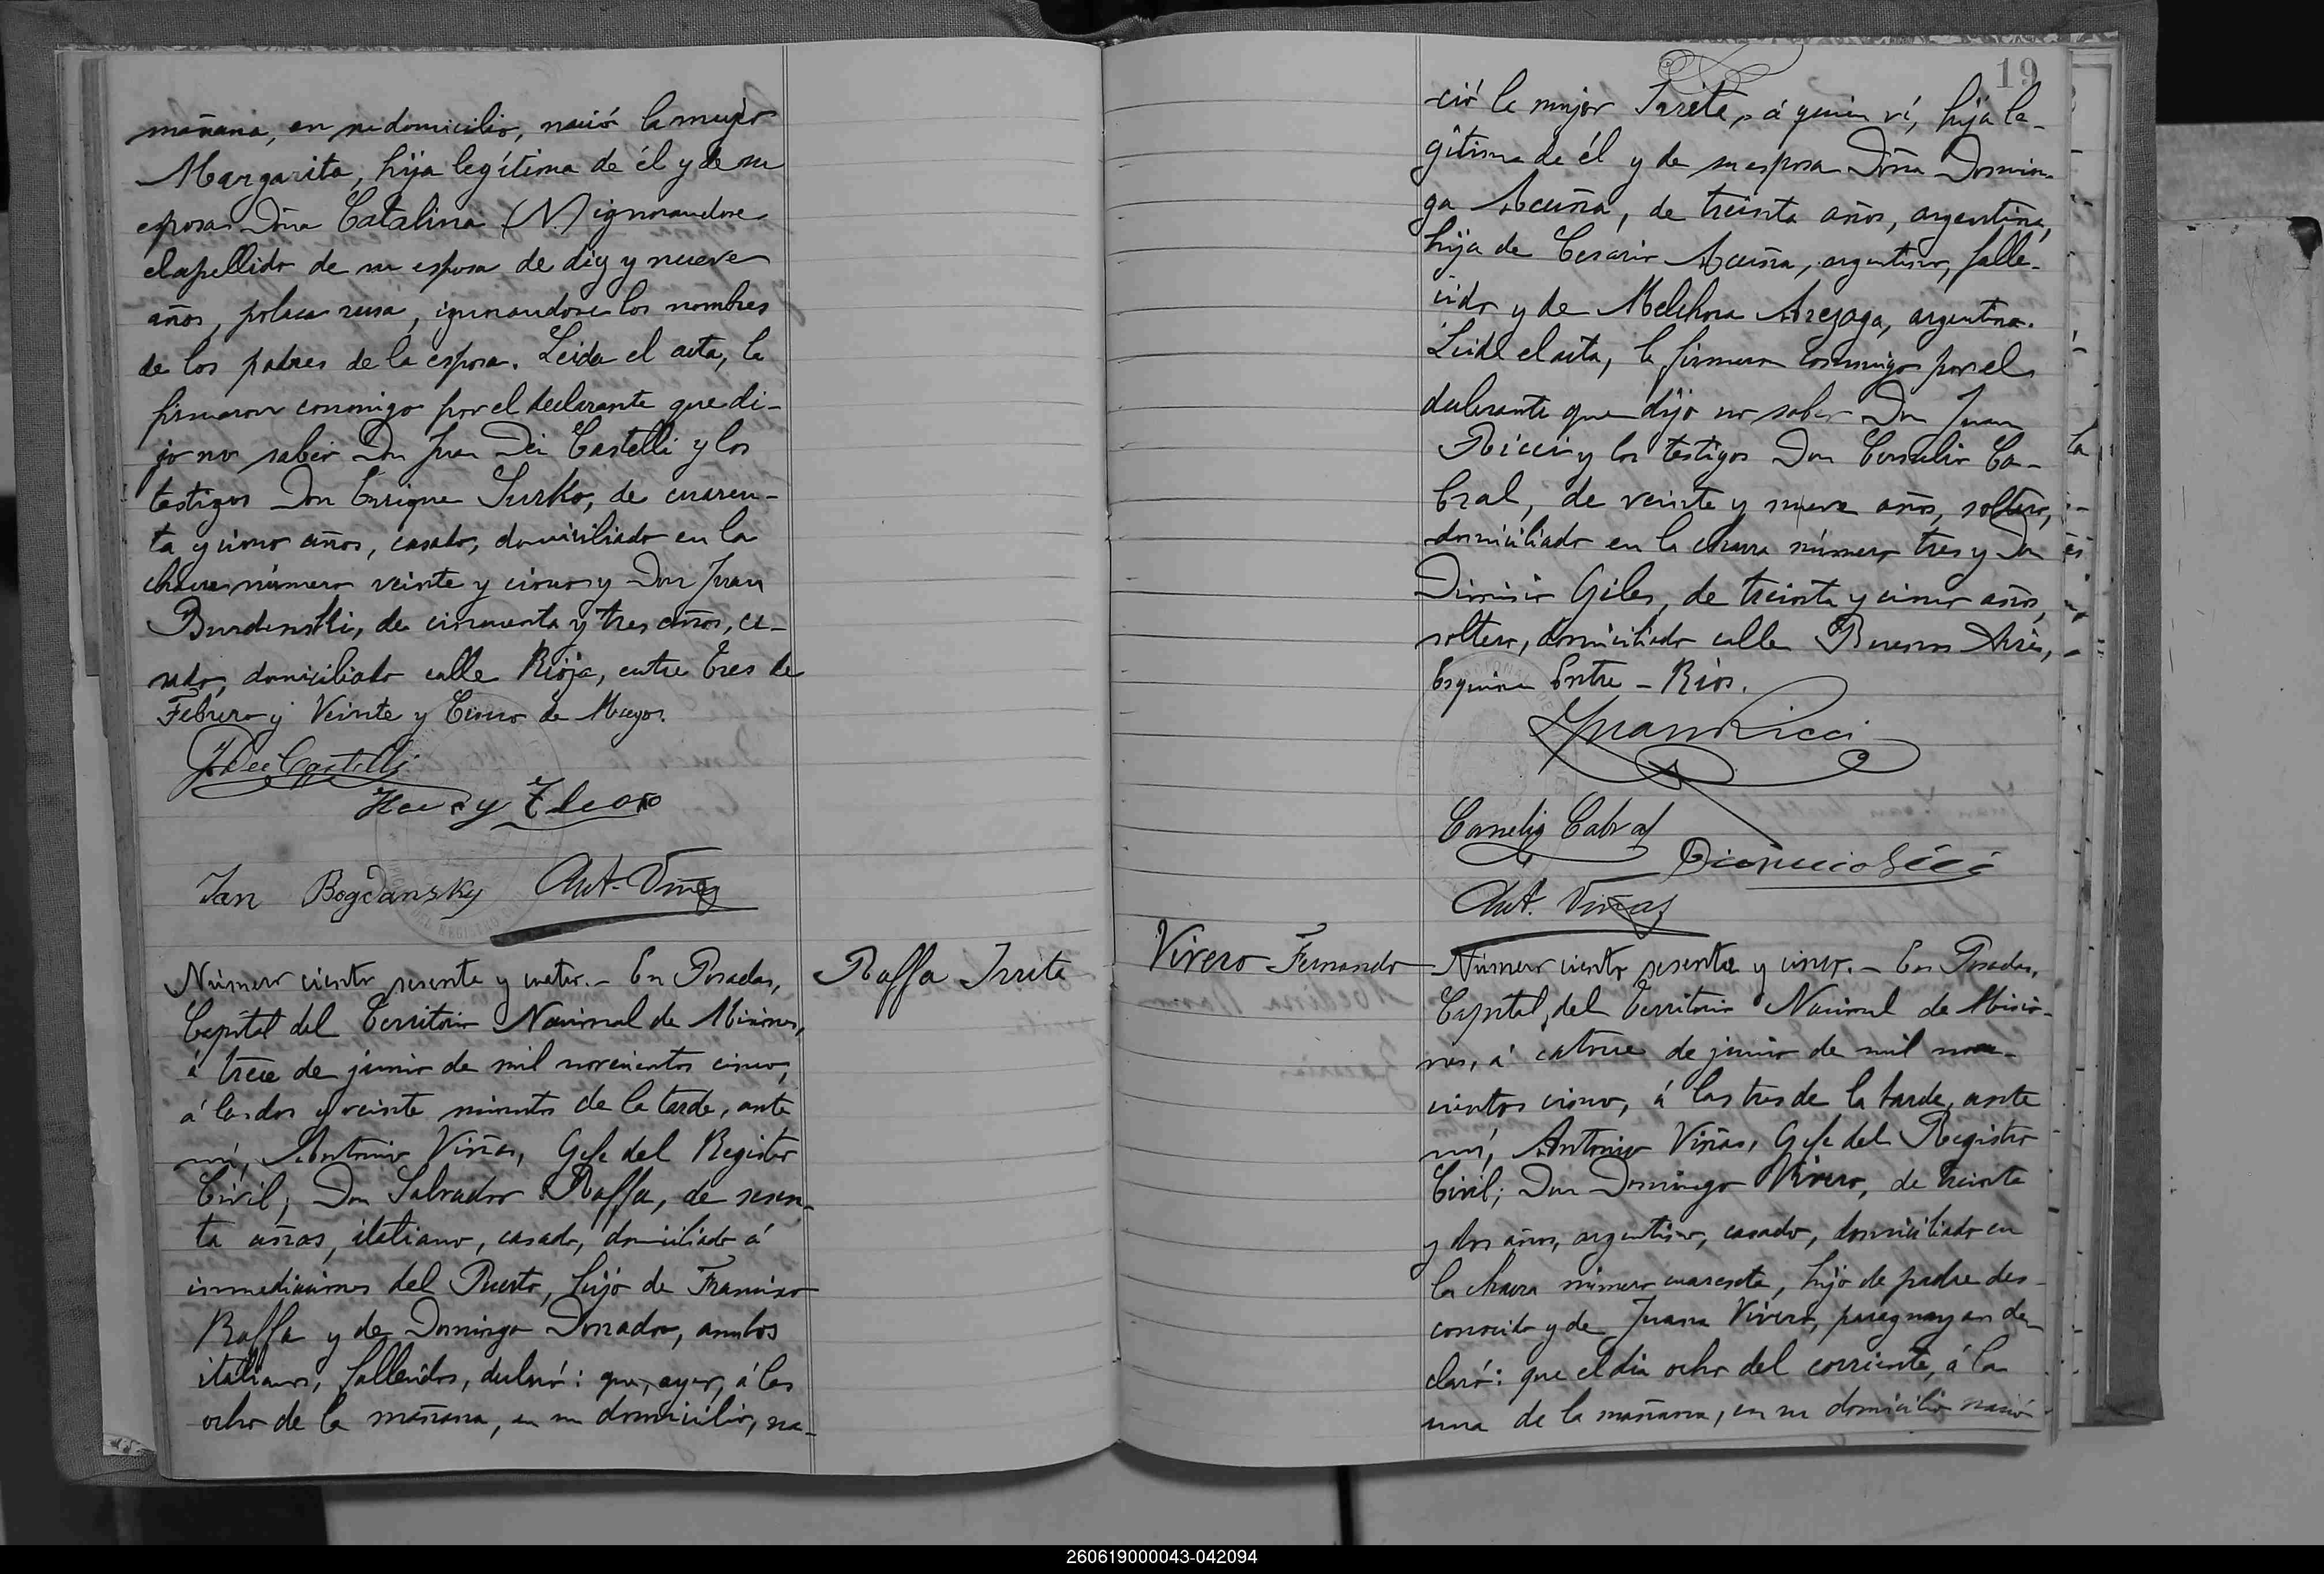 mañana, en su domicilio, nació la mujer
Margarita, hija legítima de él y de su
esposa Doña Catalina (N.) ignorandose
el apellido de su esposa de diez y nueve
años, polaca rusa, ignorandose los nombres
de los padres de la esposa. Leida el acta, la
firmaron conmigo por el declarante que di-
jo no saber Don Juan Dei Castelli y los
testigos Don Enrique Surko, de cuaren-
ta y cinco años, casado, domiciliado en la
chacra número veinte y cinco y Don Juan
de cincuenta y tres años, ca-
sado, domiciliado calle Rioja, entre Tres de
Febrero y Veinte y Cinco de Mayo.
J. Dei Castelli
Jan Bogdansky Ant. Viñas
Número ciento sesenta y cuatro. - En Posadas,
Capital del Territorio Nacional de Misiones,
á trece de junio de mil novecientos cinco,
á las dos y veinte minutos de la tarde, ante
mí, Antonio Viñas, Gefe del Registro
Civil; Don Salvador Raffa, de sesen-
ta años, italiano, casado, domiciliado á
inmediaciones del Puerto, hijo de Francisco
Raffa y de Dominga Donador, ambos
italianos, fallecidos, declaró: que, ayer, á las
ocho de la mañana, en su domicilio, na-
Raffa
19
ció la mujer á quien ví, hija le-
gítima de él y de su esposa Doña Domin-
ga Acuña, de treinta años, argentina,
hija de Cesario Acuña, argentino, falle-
cido y de Melchora argentina.
Leida el acta, la firmaron conmigo por el
declarante que dijo no saber Don Juan
Ricci y los testigos Don Cornelio Ca-
bral, de veinte y nueve años, soltero,
domiciliado en la chacra número tres y Don
Dionisio Giles, de treinta y cinco años,
soltero, domiciliado calle Buenos Aires,
Esquina Entre-Rios.
Juan Ricci
Cornelio Cabral
Ant. Viñas
Vivero Fernando
Número ciento sesenta y cinco. - En Posadas,
Capital, del Territorio Nacional de Misio-
nes, á catorce de junio de mil nove-
cientos cinco, á las tres de la tarde, ante
mí, Antonio Viñas, Gefe del Registro
Civil; Don Domingo Vivero, de treinta
y dos años, argentino, casado, domiciliado en
la chacra número cuarenta, hijo de padre des-
conocido y de Juana Vivero, paraguaya de-
claró: que el dia ocho del corriente, á la
una de la mañana, en su domicilio nació
260619000043-042094